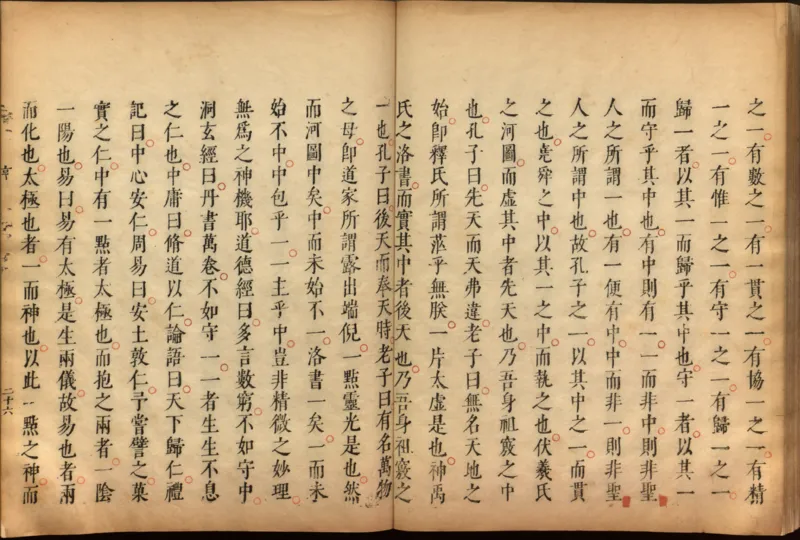 之一有數之一有一貫之一有協一之一有精
一之一有惟一之一有守一之一有歸一之一
歸一者以其一而歸乎其中也守一者以其一
而守乎其中也有中則有一一而非中則非聖
人之所謂一也有一便有中中而非一則非聖
人之所謂中也故孔子之一以其中之一而貫
之也堯舜之中以其一之中而執之也伏羲氏
之河圖而虛其中者先天也乃吾身祖竅之中
也孔子曰先天而天弗違老子曰無名天地之
始卽釋氏所謂茫乎無朕一片太虛是也神禹
氏之洛書而實其中者後天也乃吾身祖竅之
一也孔子曰後天而奉天時老子曰有名萬物
之母卽道家所謂露出端倪一點靈光是也然
而河圖中矣中而未始不一洛書一矣一而未
始不中中包乎一一主乎中豈非精微之妙理
無爲之神機耶道德經曰多言數窮不如守中
洞玄經曰丹書萬卷不如守一一者生生不息
之仁也中庸曰脩道以仁論語曰天下歸仁禮
記曰中心安仁周易曰安土敦仁予嘗譬之菓
實之仁中有一點者太極也而抱之兩者一陰
一陽也易曰易有太極是生兩儀故易也者兩
而化也太極也者一而神也以此一點之神而
二十六